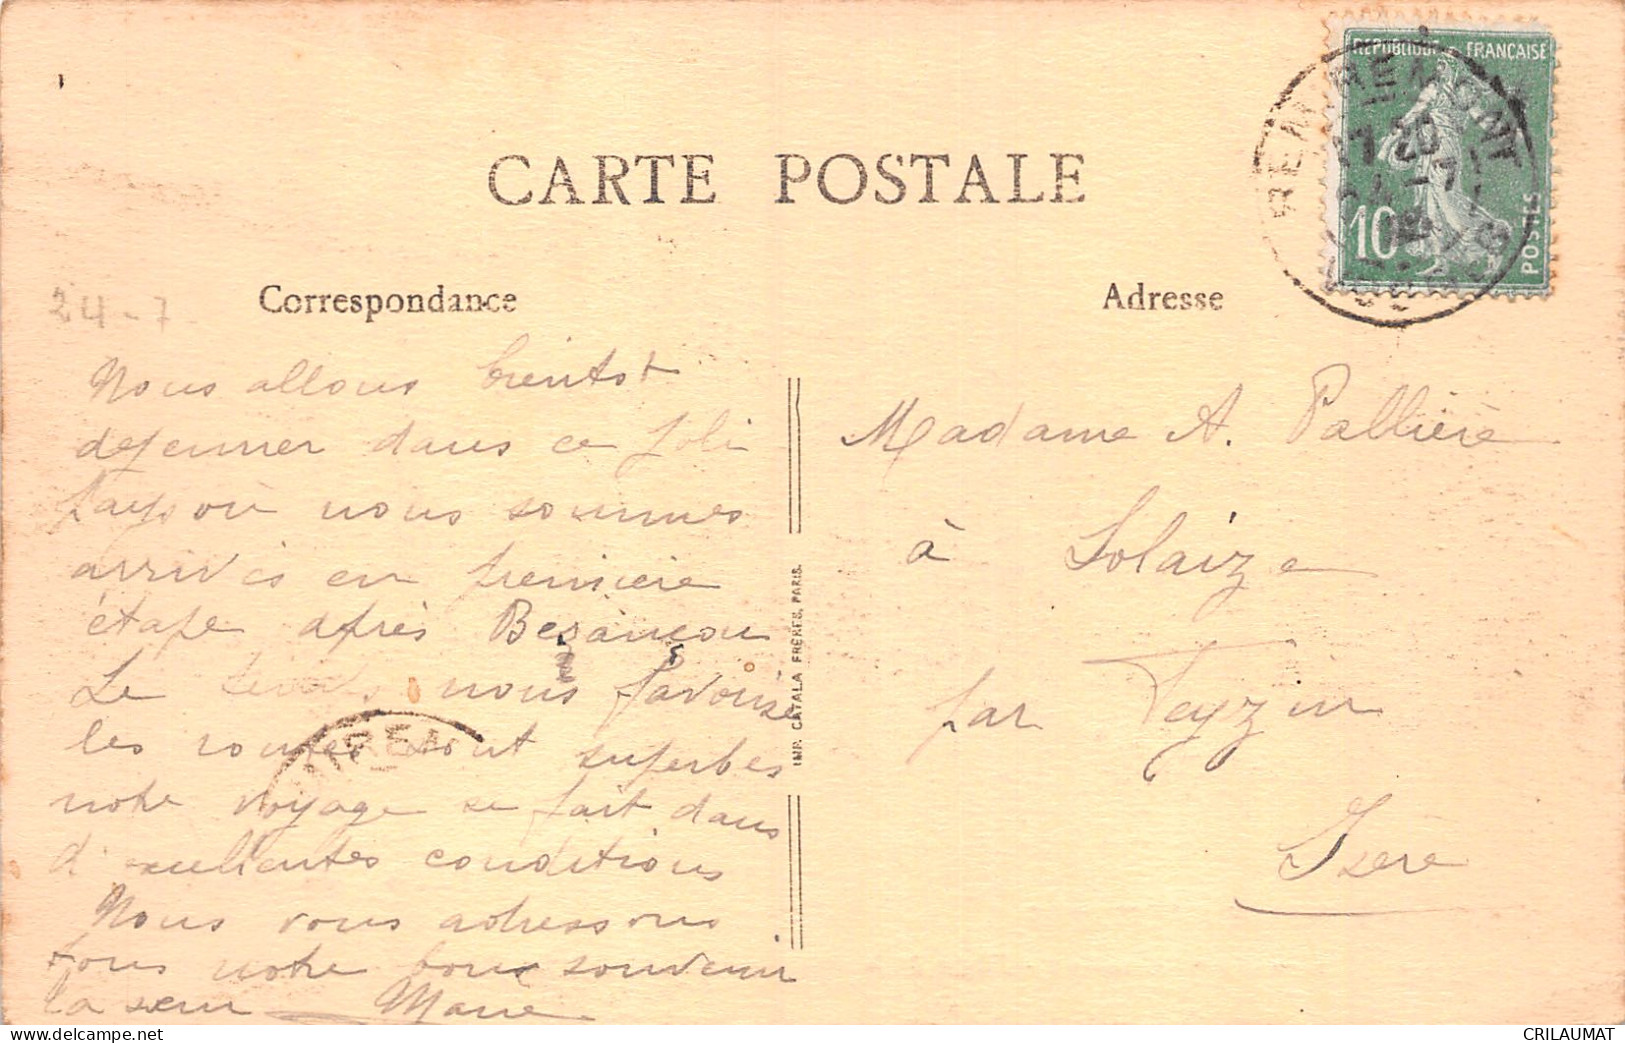 REPUBLIQUE FRANÇAISE
10
POSTES
REMIREMONT
CARTE POSTALE
Correspondance
Adresse
24-7
Nous allons bientot
dejeuner dans ce joli
pays où nous sommes
arrivés en première
étape après Besançon
Le nous favorise
les routes sont superbes
notre voyage se fait dans
d'excellentes conditions
Nous vous adressons
tous notre bon souvenir
la sœur Marie
IMP. CATALA FRÈRES, PARIS.
Madame A. Pallière
à Solaize
par Feyzin
Isère
CRILAUMAT